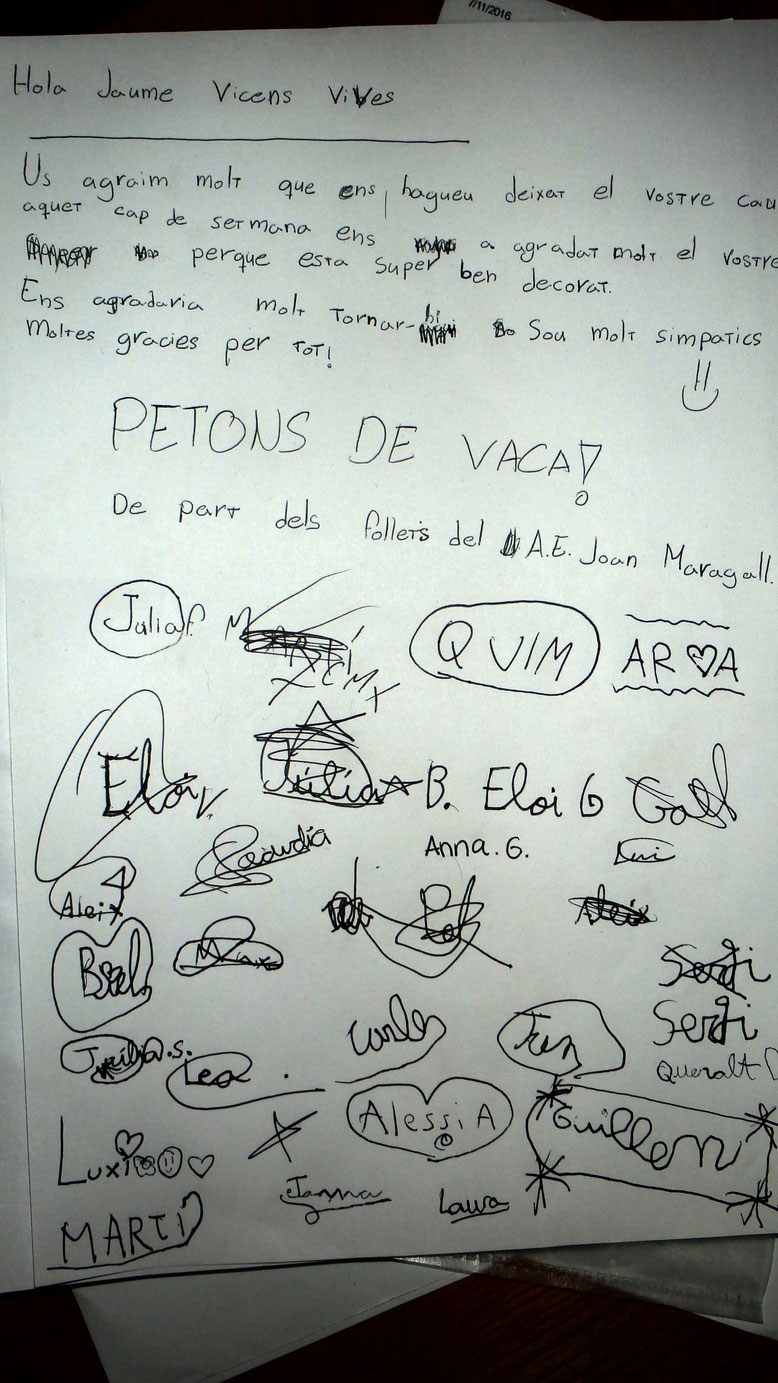 7/11/2016
Hola Jaume Vicens Vives
Us agraim molt que ens hagueu deixat el vostre cau
aquet cap de setmana ens a agradat molt el vostre
perque esta super ben decorat.
Ens agradaria molt tornar-hi Sou molt simpatics
Moltes gracies per tot!
PETONS DE VACA!
De part dels follets del A.E. Joan Maragall.
Julia P. MARTÍ QUIM AR♡A
Eloi V Júlia B. Eloi G Gall
Claudia Anna. G.
Aleix Pol Aleix
Biel Max Sergi
Carles Sergi
Júlia.s. Lea Queralt
Alessia Guillem
Luxi
Janna Laura
MARTI